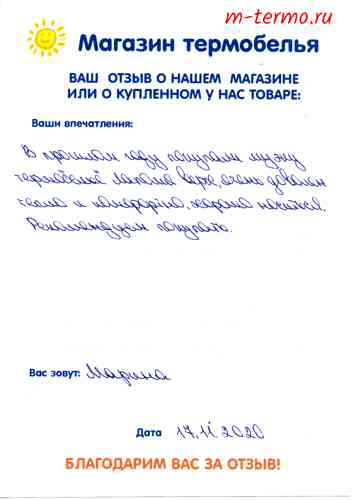 m-termo.ru
Магазин термобелья
ВАШ ОТЗЫВ О НАШЕМ МАГАЗИНЕ
ИЛИ О КУПЛЕННОМ У НАС ТОВАРЕ:
Ваши впечатления:
В прошлом году покупали мужу
термобельё очень доволен
тепло и комфортно, хорошо носится.
Рекомендуем покупать.
Вас зовут: Марина
Дата 17.11 2020
БЛАГОДАРИМ ВАС ЗА ОТЗЫВ!